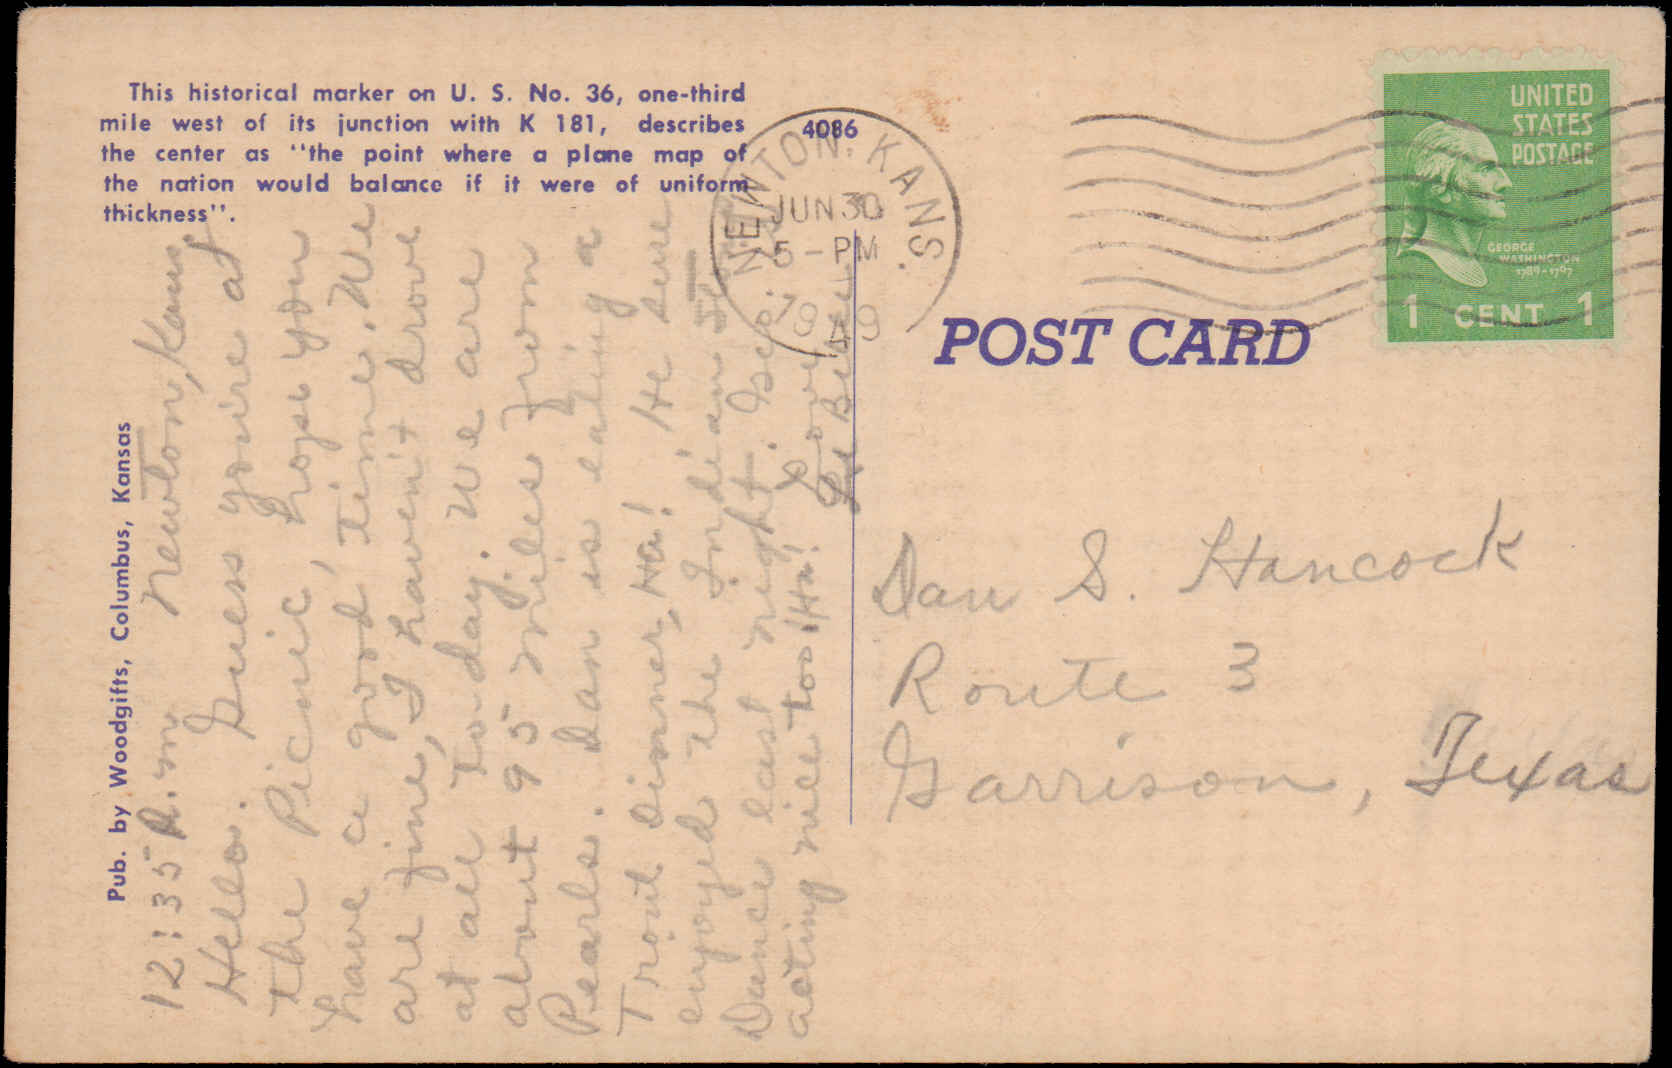 This historical marker on U. S. No. 36, one-third
mile west of its junction with K 181, describes
the center as ''the point where a plane map of
the nation would balance if it were of uniform
thickness''.
4086
NEWTON, KANS.
JUN 30
5 - PM
1949
UNITED
STATES
POSTAGE
GEORGE
WASHINGTON
1789-1797
1 CENT 1
POST CARD
Pub. by Woodgifts, Columbus, Kansas
12:35 P.m. Newton, Kans.
Hello. Guess you're at
the Picnic, hope you
have a good time. We
are fine, I haven't drove
at all today. We are
about 95 miles from
Pearls. Dan is eating a
Trout dinner, Ha! He sure
enjoyed the Indian
Dance last night.
acting nice too! Ha! Love
Dan S. Hancock
Route 3
Garrison, Texas